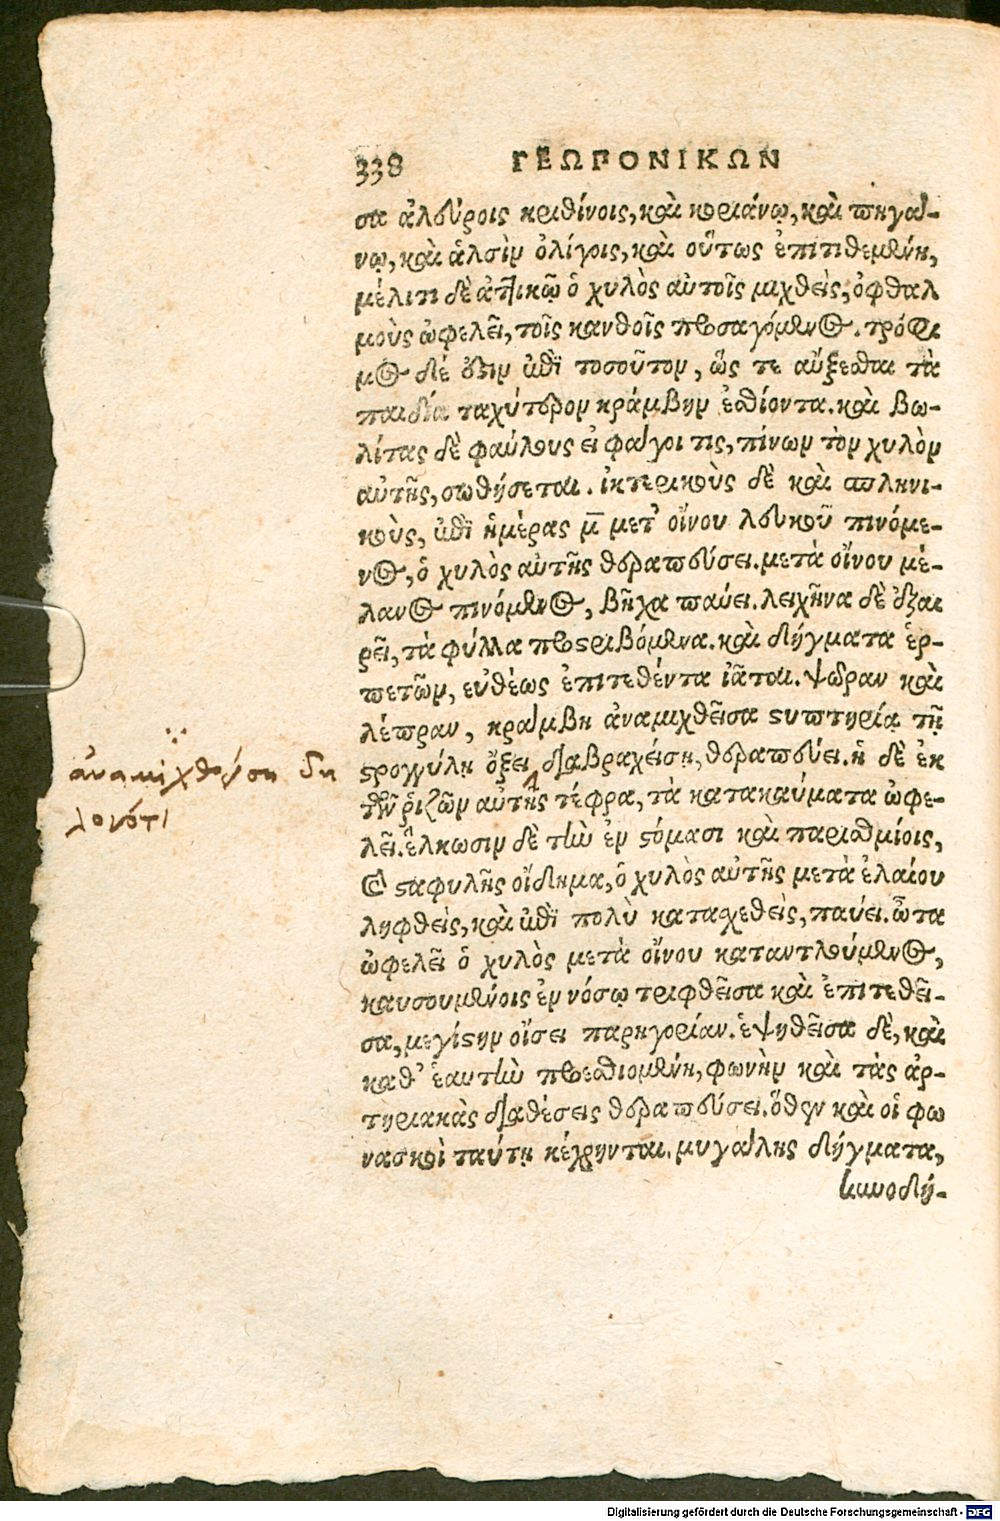 338 ΓΕΩΠΟΝΙΚΩΝ
σα ἀλεύροις κριθίνοις, καὶ κοριάνῳ, καὶ πηγά-
νῳ, καὶ ἁλσὶν ὀλίγοις, καὶ οὕτως ἐπιτιθεμένη,
μέλιτι δὲ ἀττικῷ ὁ χυλὸς αὐτοῖς μιχθεὶς, ὀφθαλ
μοὺς ὠφελεῖ, τοῖς κανθοῖς προσαγόμενος. τρόφι
μος δέ ἐστιν ἐπὶ τοσοῦτον, ὥς τε αὔξεσθαι τὰ
παιδία ταχύτερον κράμβην ἐσθίοντα. καὶ βω-
λίτας δὲ φαύλους εἰ φάγοι τις, πίνων τὸν χυλὸν
αὐτῆς, σωθήσεται. ἰκτερικοὺς δὲ καὶ σπληνι-
κοὺς, ἐπὶ ἡμέρας μ̅ μετ' οἴνου λευκοῦ πινόμε-
νος, ὁ χυλὸς αὐτῆς θεραπεύσει. μετὰ οἴνου μέ-
λανος πινόμενος, βῆχα παύει. λειχῆνα δὲ ἐξαι
ρεῖ, τὰ φύλλα προστριβόμενα. καὶ δήγματα ἑρ-
πετῶν, εὐθέως ἐπιτεθέντα ἰᾶται. ψώραν καὶ
λέπραν, κράμβη ἀναμιχθεῖσα στυπτηρίᾳ τῇ
στρογγύλῃ ὄξει διαβραχείσῃ, θεραπεύει. ἡ δὲ ἐκ
τῶν ῥιζῶν αὐτῆς τέφρα, τὰ κατακαύματα ὠφε-
λεῖ. ἕλκωσιν δὲ τὴν ἐν στόμασι καὶ παρισθμίοις,
καὶ σταφυλῆς οἴδημα, ὁ χυλὸς αὐτῆς μετὰ ἐλαίου
ληφθεὶς, καὶ ἐπὶ πολὺ κατασχεθεὶς, παύει. ὦτα
ὠφελεῖ ὁ χυλὸς μετὰ οἴνου καταντλούμενος,
καυσουμένοις ἐν νόσῳ τριφθεῖσα καὶ ἐπιτεθεῖ-
σα, μεγίστην οἴσει παρηγορίαν. ἑψηθεῖσα δὲ, καὶ
καθ' ἑαυτὴν προεσθιομένη, φωνὴν καὶ τὰς ἀρ-
τηριακὰς διαθέσεις θεραπεύσει. ὅθεν καὶ οἱ φω
νασκοὶ ταύτῃ κέχρηνται. μυγάλης δήγματα,
κυνοδή-
ἀναμιχθείσῃ δη
λονότι